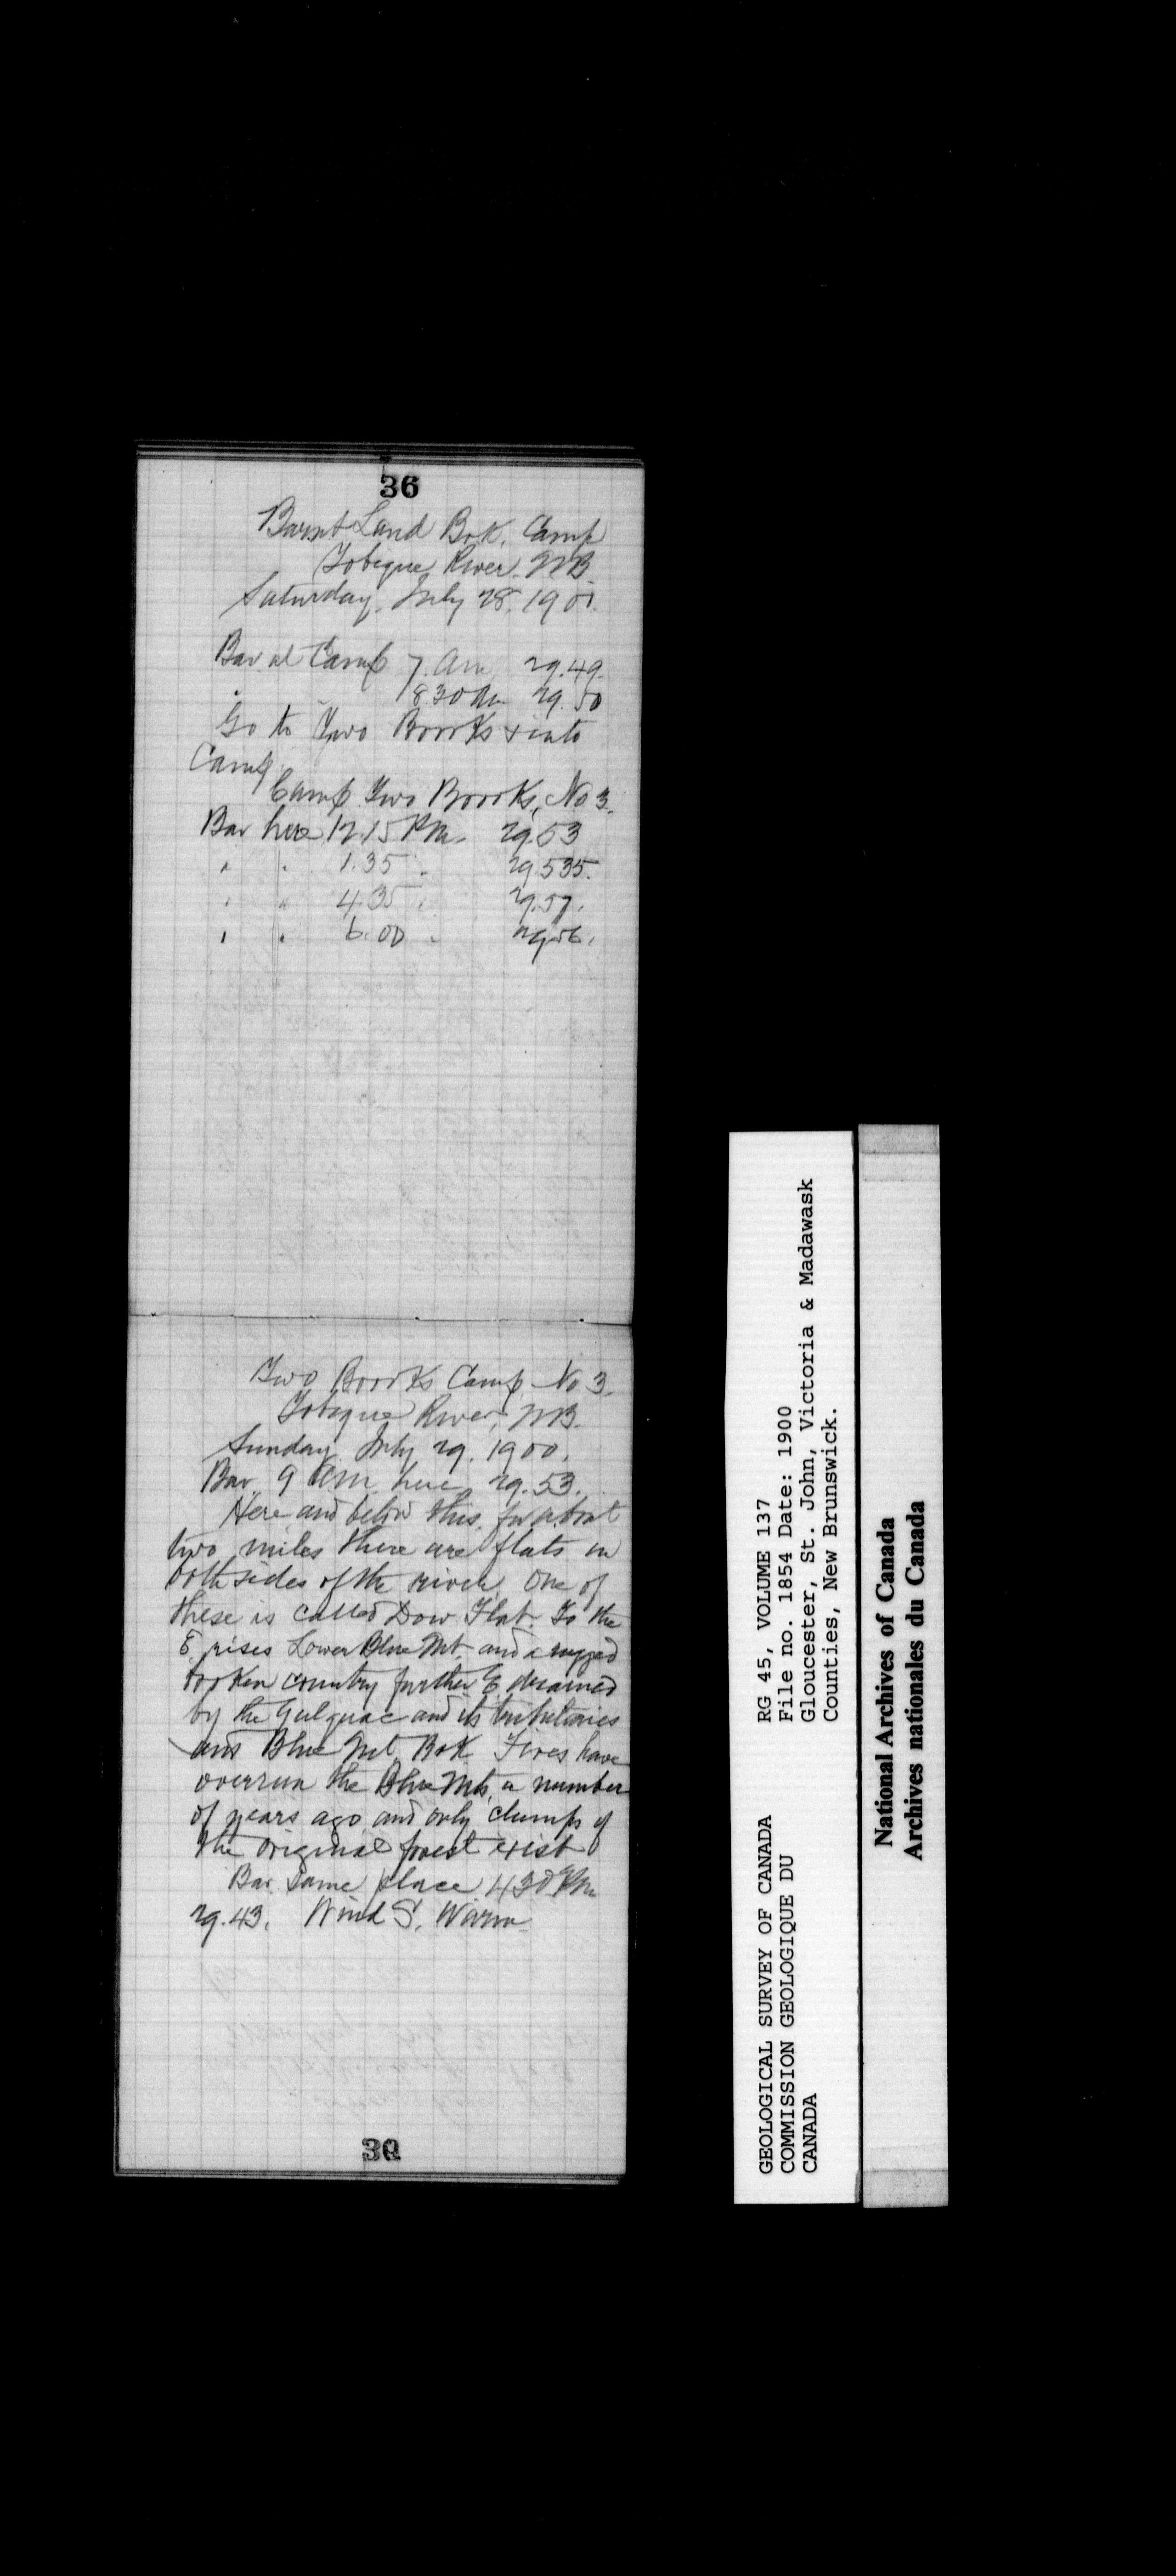 36
Burnt Land Bok. Camp
Tobique River. N.B.
Saturday. July 28. 1900.
Bar. at Camp 7. am 29.49.
" 8.30 am 29.50
Go to Two Brooks & into
Camp.
Camp Two Brooks, No 3.
Bar here 12.15 P.M. 29.53
" " 1.35 " 29.535.
" " 4.35 " 29.57.
" " 6.00 " 29.56.
Two Brooks Camp, No 3.
Tobique River, N.B.
Sunday July 29. 1900.
Bar. 9 am. here 29.53.
Here and below this, for about
two miles there are flats on
both sides of the river. One of
these is called Dow Flat. To the
E. rises Lower Blue Mt. and a rugged
broken country further E drained
by the Gulquac and its tributaries
and Blue Mt. Bok. Fires have
overrun the Blue Mts, a number
of years ago and only clumps of
the original forest exist
Bar. same place 4.30 P.M.
29.43. Wind S. Warm.
39
GEOLOGICAL SURVEY OF CANADA
COMMISSION GEOLOGIQUE DU
CANADA
RG 45, VOLUME 137
File no. 1854 Date: 1900
Gloucester, St. John, Victoria & Madawask
Counties, New Brunswick.
National Archives of Canada
Archives nationales du Canada